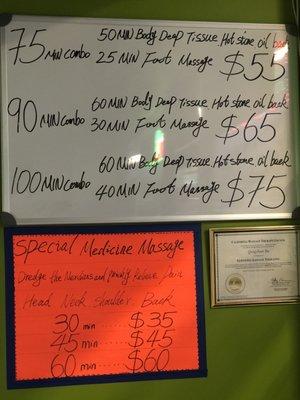 75 Min Combo
50 MIN Body Deep Tissue Hot stone oil back
25 MIN Foot Massage $55
90 MIN Combo
60 MIN Body Deep Tissue Hot stone oil back
30 MIN Foot Massage $65
100 MIN Combo
60 MIN Body Deep Tissue Hot stone oil back
40 MIN Foot Massage $75
Special Medicine Massage
Dredge the Meridians and Relieve Pain
Head Neck Shoulder Back
30 min ..... $35
45 min ..... $45
60 min ..... $60